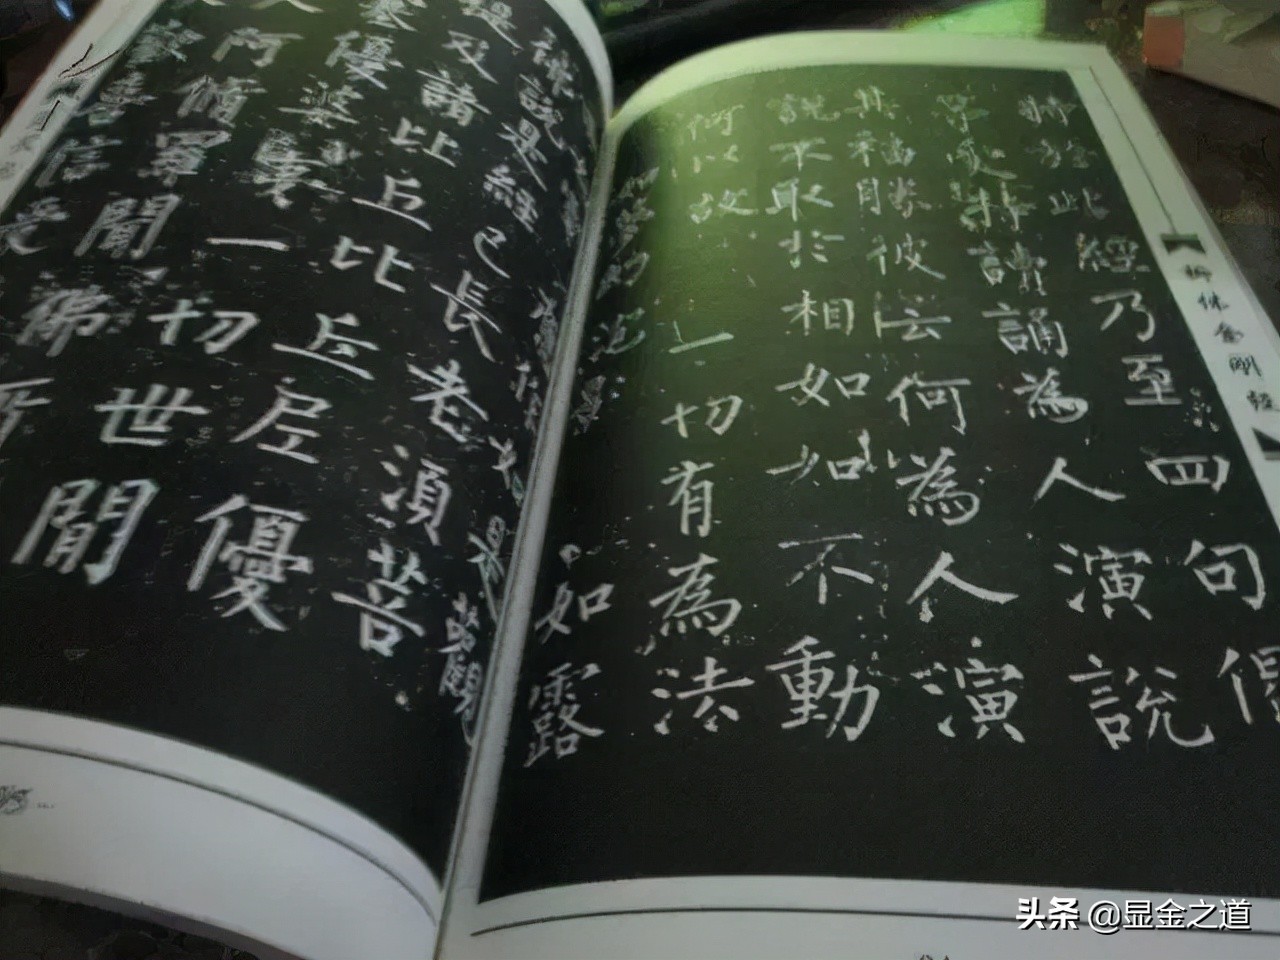 柳体金刚经
於此經乃至四句偈
等受持讀誦為人演說
其福勝彼云何為人演
說不取於相如如不動
何以故一切有為法
泡影如露
佛說是經已長老須菩
提及諸比丘比丘尼優
塞優婆夷一切世間
人阿脩羅聞佛所
歡喜信受
头条 @显金之道